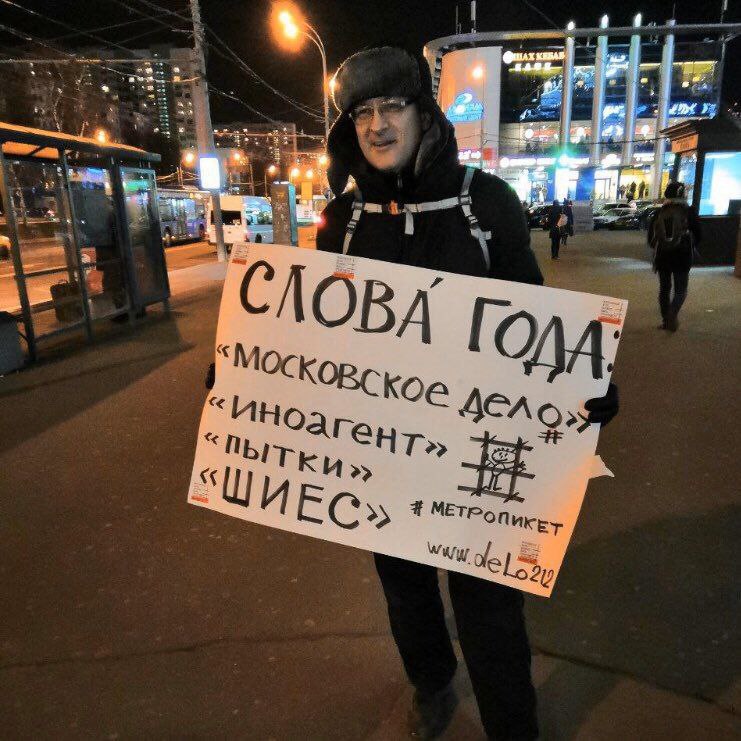 ШАХ КЕБАБ
СЛОВА́ ГОДА:
«МОСКОВСКОЕ ДЕЛО»
«ИНОАГЕНТ» #
«ПЫТКИ»
«ШИЕС»
# МЕТРОПИКЕТ
www.delo212